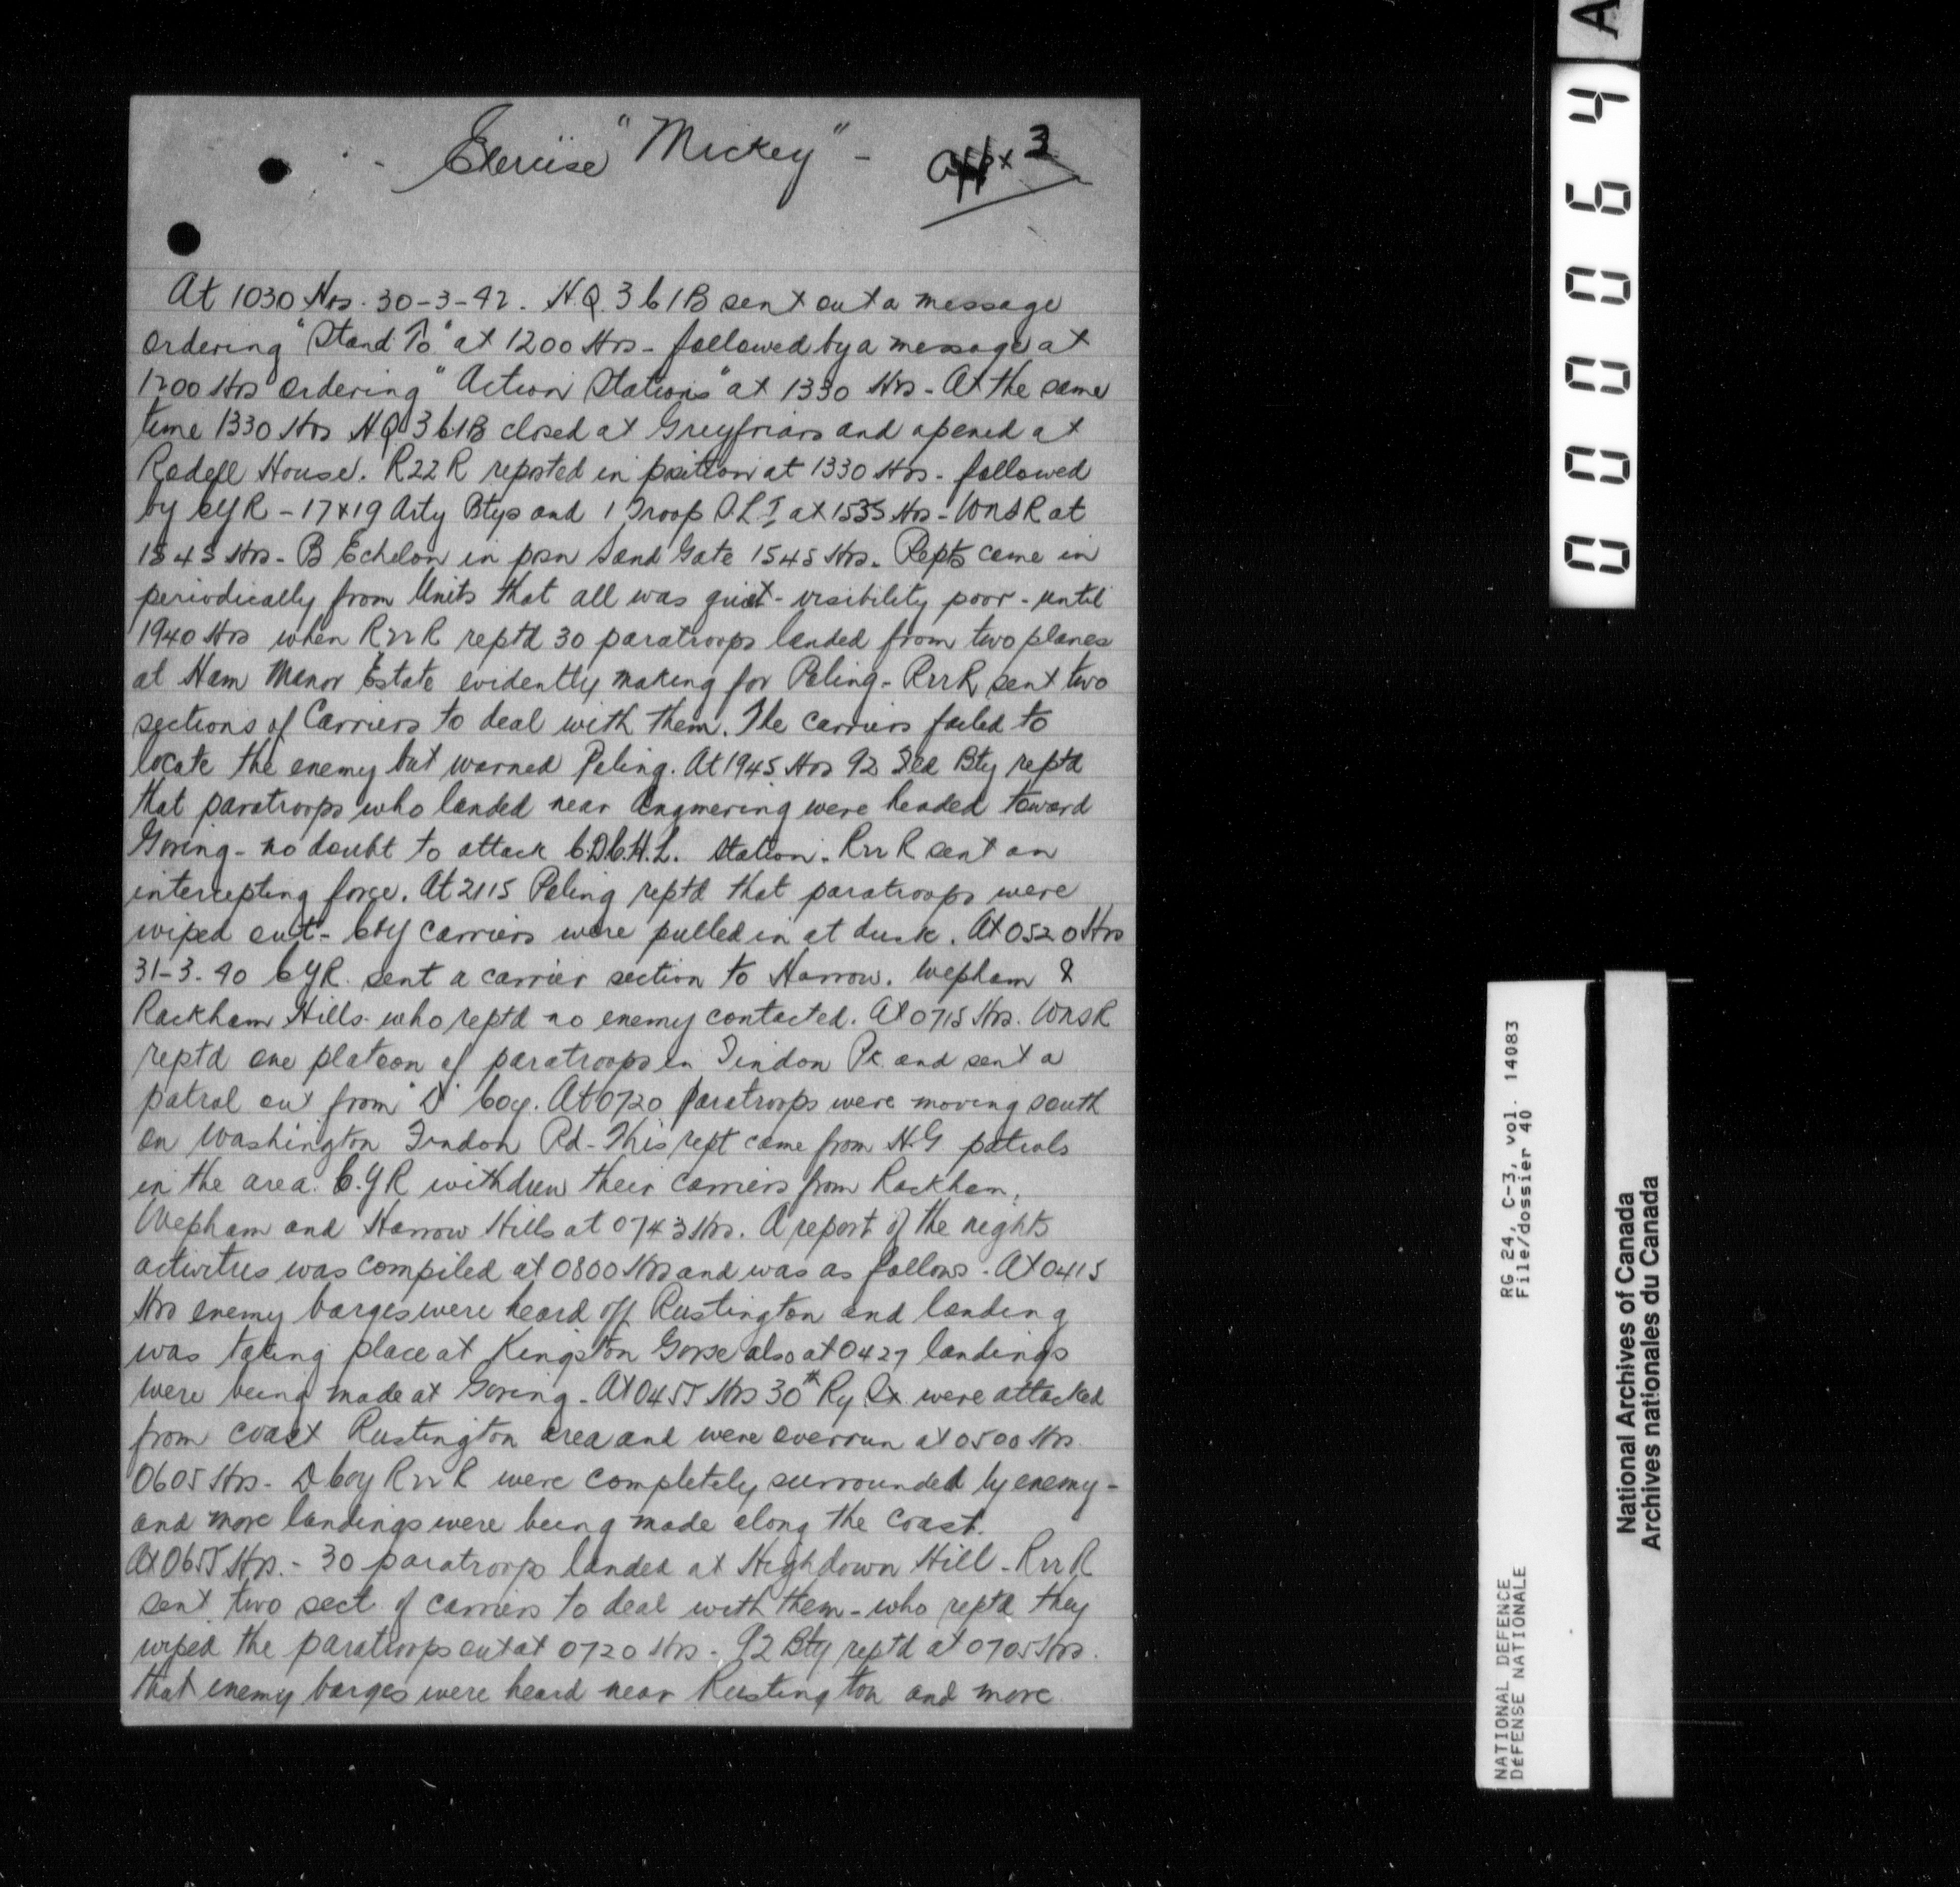 - Exercise "Mickey" -
Appx 3
At 1030 Hrs. 30-3-42. H.Q. 3 C I B sent out a message
ordering "Stand To" at 1200 Hrs - followed by a message at
1200 Hrs ordering "Action Stations" at 1330 Hrs - At the same
time 1330 Hrs HQ 3 C I B closed at Greyfriars and opened at
Rodell House. R22R reported in position at 1330 Hrs - followed
by CYR - 17 & 19 Arty Btys and 1 Troop D.L.I at 1535 Hrs - WNSR at
1545 Hrs - B Echelon in posn Sand Gate 1545 Hrs. Repts come in
periodically from Units that all was quiet - visibility poor - until
1940 Hrs when R22R reptd 30 paratroops landed from two planes
at Ham Manor Estate evidently making for Poling - R22R sent two
sections of Carriers to deal with them. The carriers failed to
locate the enemy but warned Poling. At 1945 Hrs 92 Fld Bty reptd
that paratroops who landed near Angmering were headed toward
Goring - no doubt to attack C.D.C.H.L. Station. R22R sent an
intercepting force. At 2115 Poling reptd that paratroops were
wiped out - Coy carriers were pulled in at dusk. At 0520 Hrs
31-3-40 CYR. sent a carrier section to Harrow. Wepham &
Rackham Hills who reptd no enemy contacted. At 0715 Hrs. WNSR
reptd one platoon of paratroops in Findon Pk. and sent a
patrol out from "D" Coy. At 0720 paratroops were moving south
on Washington Findon Rd - This rept came from H.G. patrols
in the area. C.Y R withdrew their carriers from Rackham,
Wepham and Harrow Hills at 0743 Hrs. A report of the nights
activities was compiled at 0800 Hrs and was as follows - At 0415
Hrs enemy barges were heard off Rustington and landing
was taking place at Kingston Gorse also at 0427 landings
were being made at Goring - At 0455 Hrs 30th Ry were attacked
from coast Rustington area and were overrun at 0500 Hrs.
0605 Hrs - D Coy R22R were completely surrounded by enemy -
and more landings were being made along the coast.
At 0655 Hrs. - 30 paratroops landed at Highdown Hill - R22R
sent two sect of carriers to deal with them - who reptd they
wiped the paratroops out at 0720 Hrs - 92 Bty reptd at 0705 Hrs.
that enemy barges were heard near Rustington and more
00064
A
RG 24, C-3, vol. 14083
File/dossier 40
NATIONAL DEFENCE
DÉFENSE NATIONALE
National Archives of Canada
Archives nationales du Canada